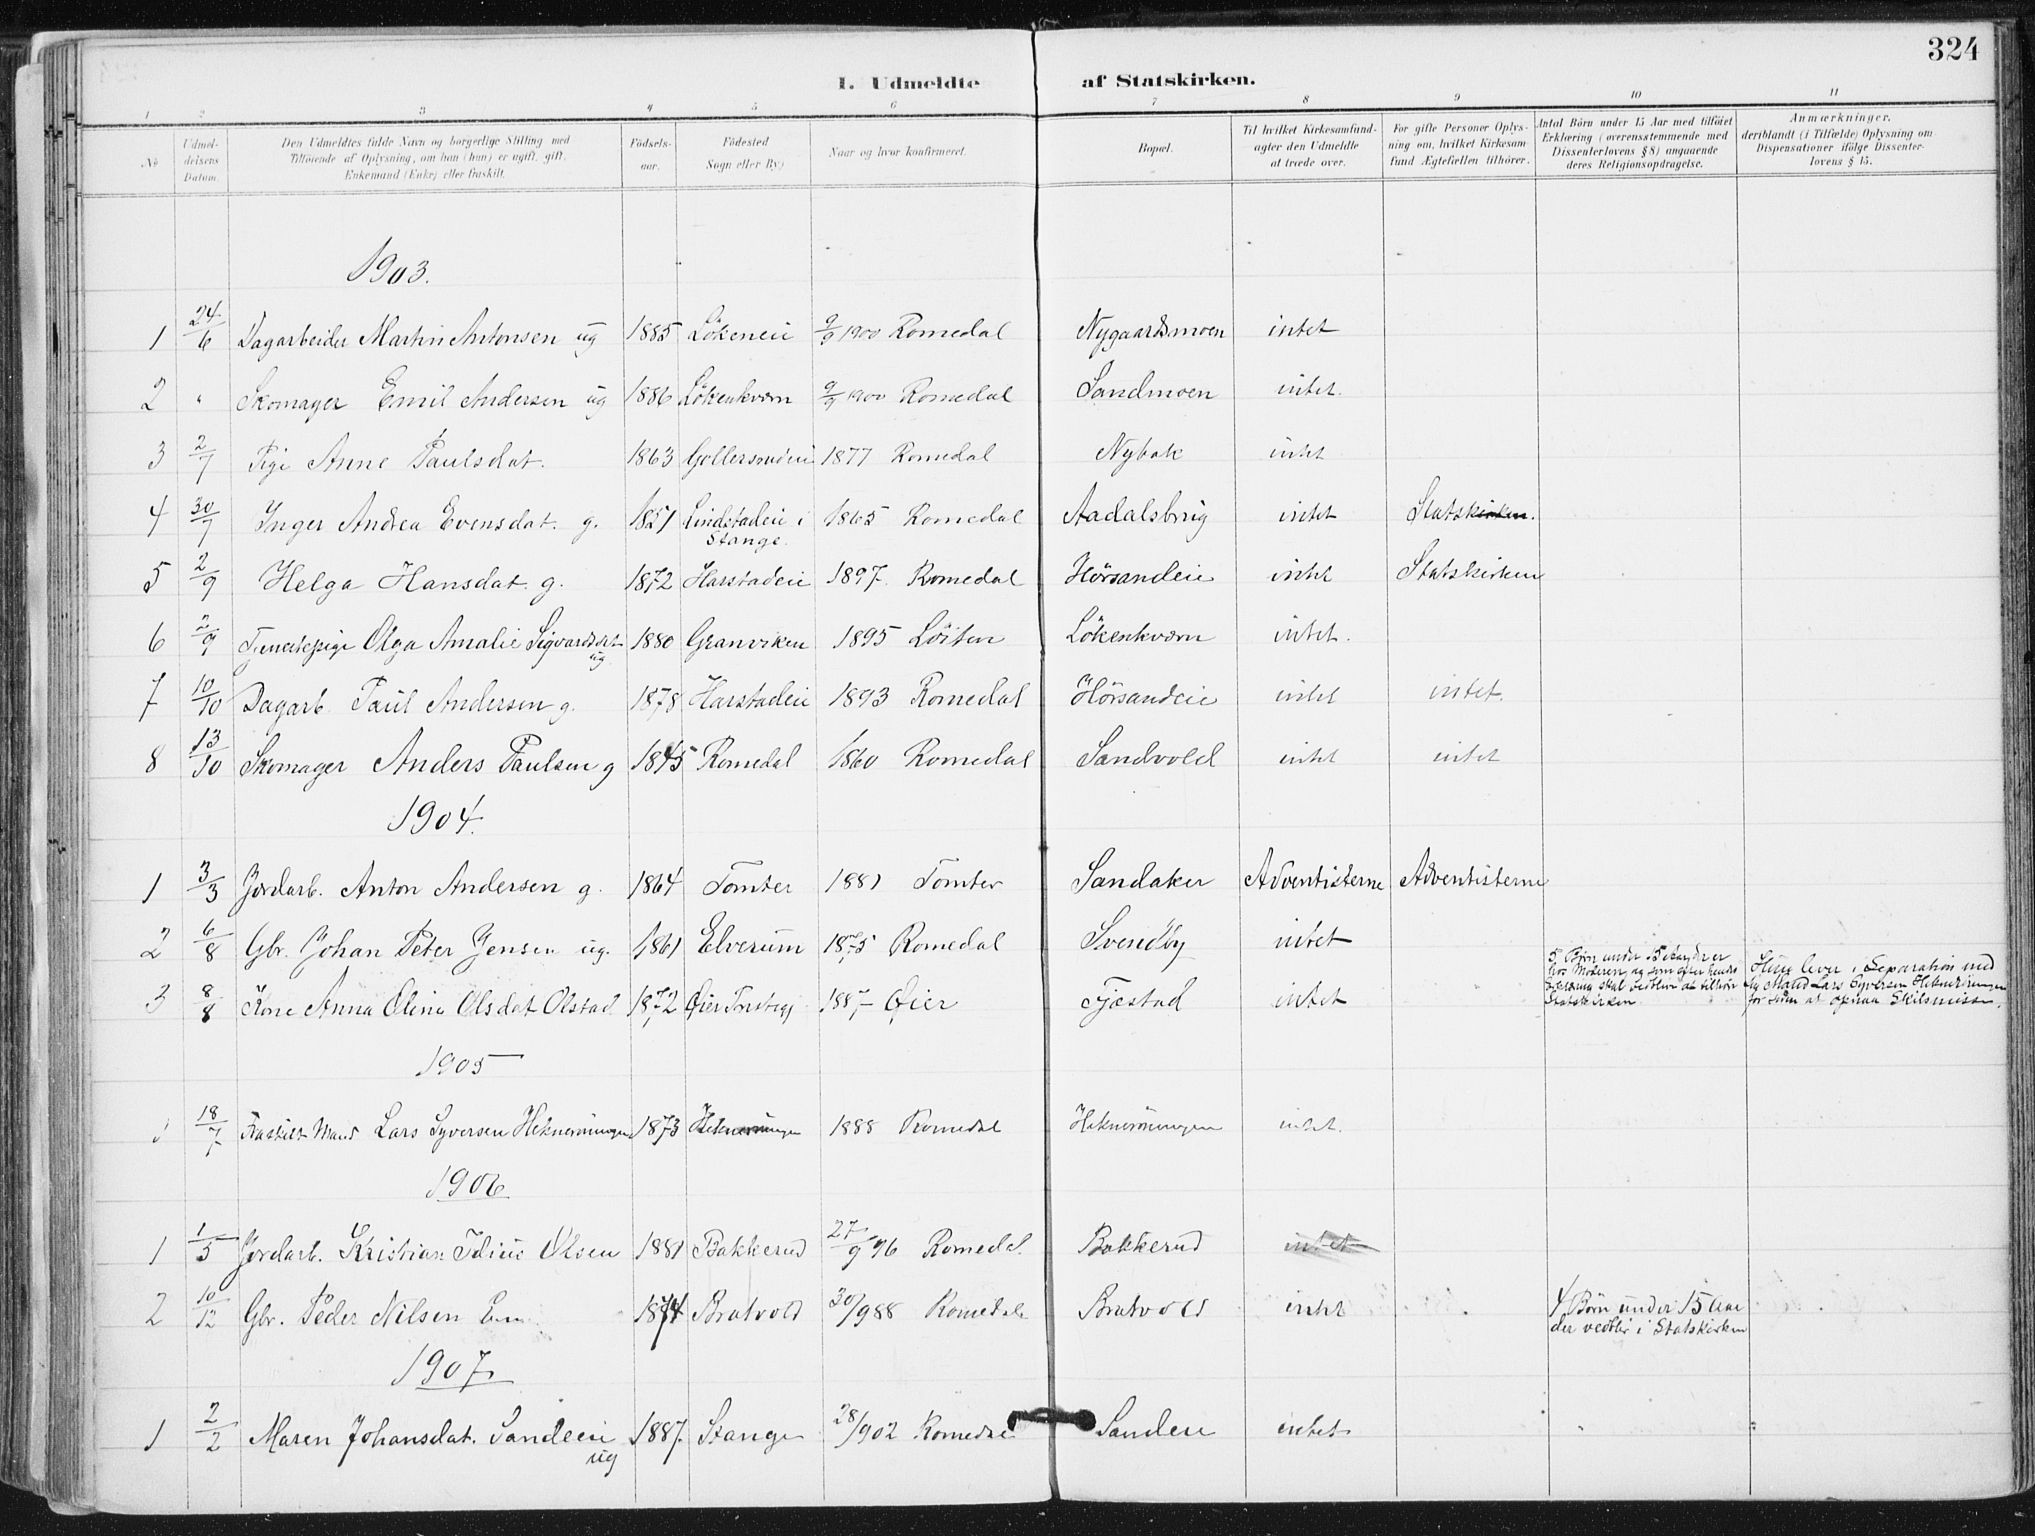 324
1. Udmeldte af Statskirken.
1 2 3 4 5 6 7 8 9 10 11
No
Udmeldelsens Datum.
Den Udmeldtes fulde Navn og borgerlige Stilling med
Tilføiende af Oplysning, om han (hun) er ugift, gift,
Enkemand (Enke) eller fraskilt.
Fødselsaar.
Fødested
(Sogn eller By)
Naar og hvor konfirmeret.
Bopæl.
Til hvilket Kirkesamfund
agter den Udmeldte
at træde over.
For gifte Personer Oplysning
om, hvilket Kirkesamfund
Ægtefællen tilhører.
Antal Børn under 15 Aar med tilføiet
Erklæring (overensstemmende med
Dissenterlovens § 8) angaaende
deres Religionsopdragelse.
Anmærkninger,
deriblandt (i Tilfælde) Oplysning om
Dispensationer ifølge Dissenterlovens
§ 15.
1903.
1 24/6 Dagarbeider Martin Antonsen ug 1885 Lökeneie 9/9 1900 Romedal Nygaardsmoen intet
2 " Skomager Emil Andersen ug 1886 Lökenkværn 9/9 1900 Romedal Sandmoen intet.
3 2/7 Pige Anne Paulsdat. 1863 1877 Romedal Nybak intet
4 30/7 Inger Andrea Evensdat. g. 1851 Lindstadeie i Stange. 1865 Romedal Aadalsbrug intet Statskirken.
5 2/9 Helga Hansdat. g. 1872 Harstadeie 1897 Romedal Hörsandeie intet Statskirken
6 2/9 Tjenestepige Olga Amalie Sigvardsdat ug. 1880 Granviken 1895 Löiten Lökenkværn intet.
7 10/10 Dagarb. Paul Andersen g. 1878 Harstadeie 1893 Romedal Hörsandeie intet intet.
8 13/10 Skomager Anders Paulsen g 1845 Romedal 1860 Romedal Sandvold intet intet
1904.
1 3/3 Jordarb. Anton Andersen g. 1864 Tomter 1881 Tomter Sandaker Adventisterne Adventisterne
2 6/8 Gbr. Johan Peter Jensen ug. 1861 Elverum 1875 Romedal Svendby intet
3 8/8 Kone Anna Eline Olsdat Olstad 1872 1887 Øier Tjæstad intet
5 Børn under 15 er
hos Moderen, og som efter hendes
skal vedblive at tilhøre
Statskirken
Hun lever i Separation med
Mand Lars Syversen
for Aum at opnaa Skilsmisse.
1905
1 18/7 Fraskilt Mand Lars Syversen Heknerøningen 1873 Heknerøningen 1888 Romedal Heknerøningen intet.
1906
1 1/5 Jordarb. Kristian Olsen 1881 Bakkerud 27/9 96 Romedal. Bakkerud intet
2 10/12 Gbr. Peder Nilsen 1874 Bratvold 30/9 88 Romedal Bratvold intet
4 Børn under 15 Aar
der vedblir i Statskirken
1907
1 2/2 Maren Johansdat. Sandeeie ug 1887. Stange 28/9 02 Romedal intet